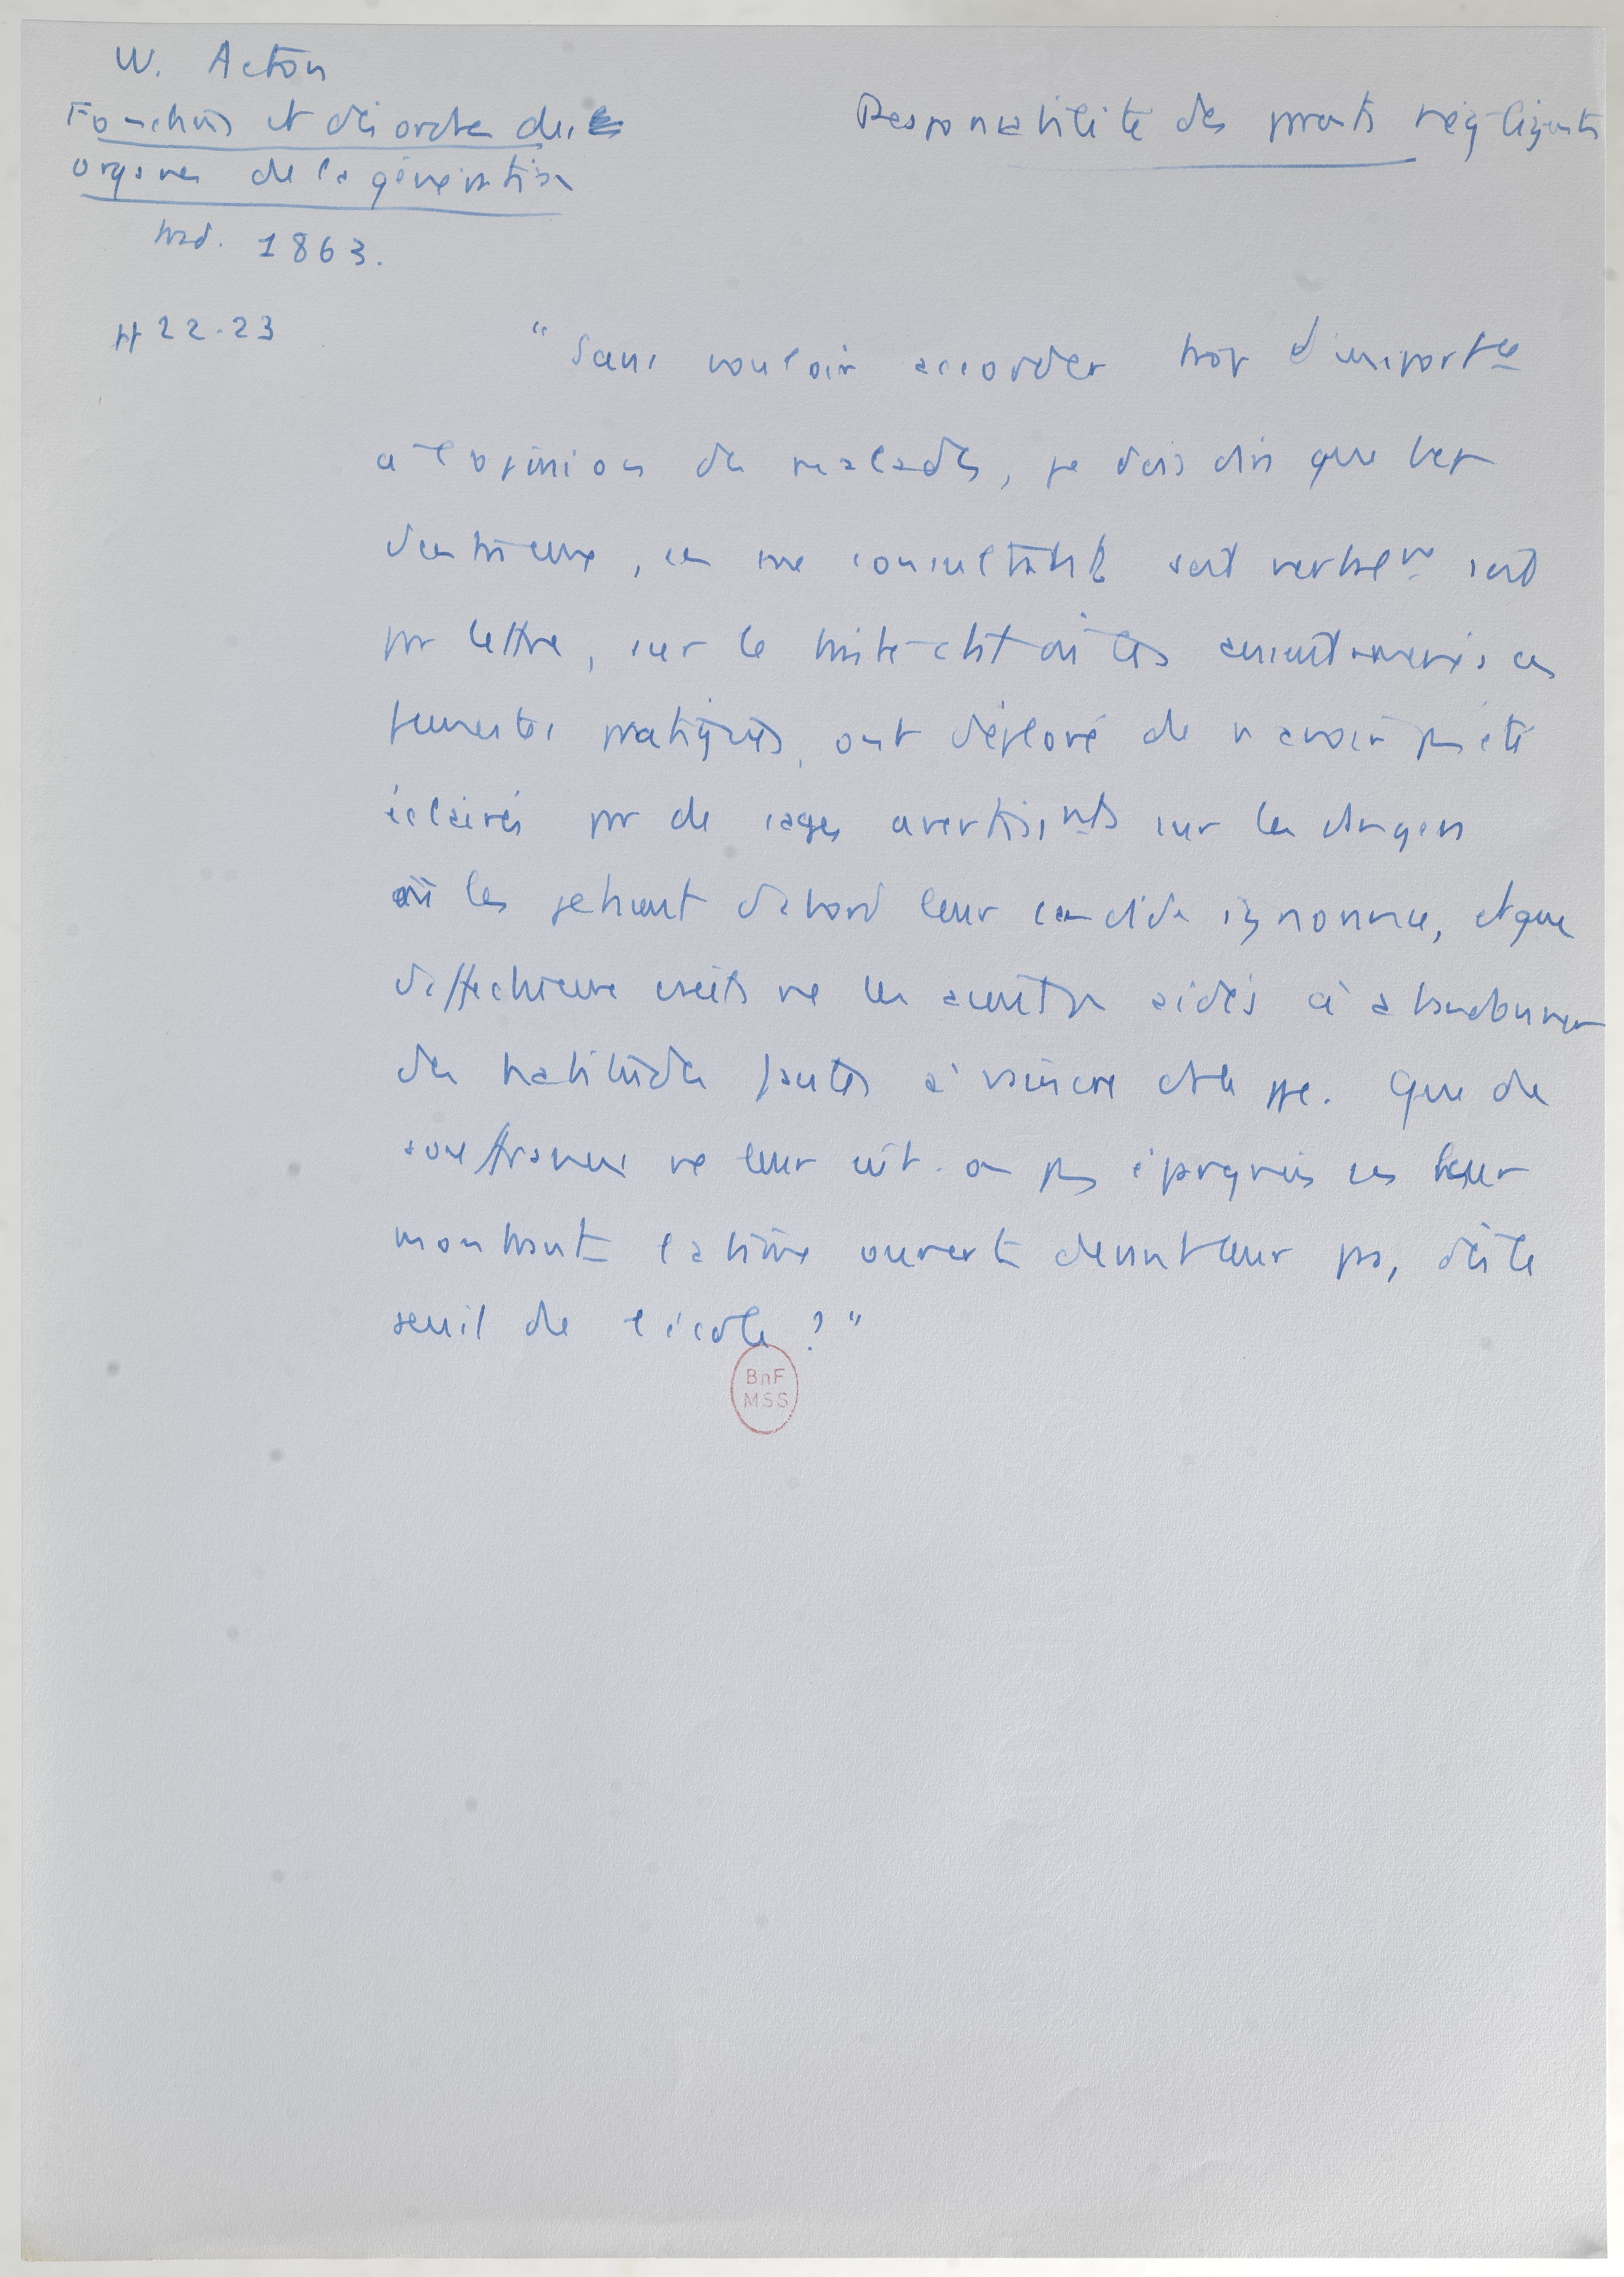 W. Acton
Fonctions et désordres des
organes de la génération
trad. 1863.
Responsabilité des parents négligents
pp 22-23
"Sans vouloir accorder trop d'importce
à l'opinion des malades, je dois dire que bcp
d'entre eux, en me consultant soit verbalemt soit
par lettre, sur le triste état où les avaient amenés ces
funestes pratiques, ont déploré de n'avoir pas été
éclairés par de sages avertissmts sur les dangers
où les jetaient d'abord leur candide ignorance, et que
d'affectueux avis ne les aient pas aidés à abandonner
des habitudes faciles à vaincre au début. Que de
souffrances ne leur eût-on pas épargnées en leur
montrant l'abîme ouvert devant leur pas, dès le
seuil de l'école ?"
BnF
MSS